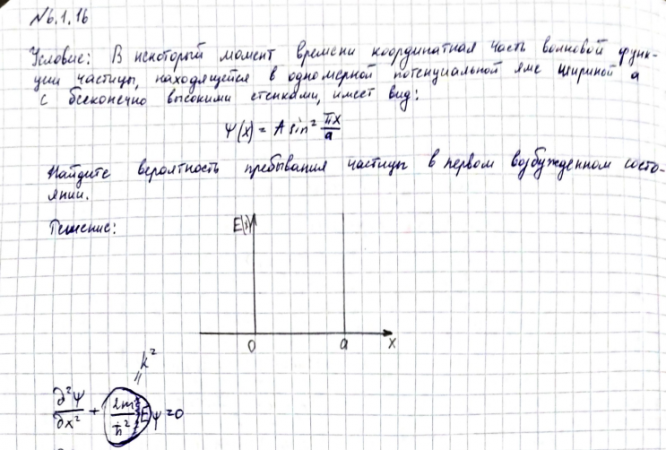 №6.1.16
Условие: В некоторый момент времени координатная часть волновой функ-
ции частицы, находящейся в одномерной потенциальной яме шириной a
с бесконечно высокими стенками, имеет вид:
Ψ(x) = A sin² πx/a
Найдите вероятность пребывания частицы в первом возбужденном состо-
янии.
Решение:
0 a x
k²
∂²Ψ/∂x² + 2m/ħ² E Ψ = 0